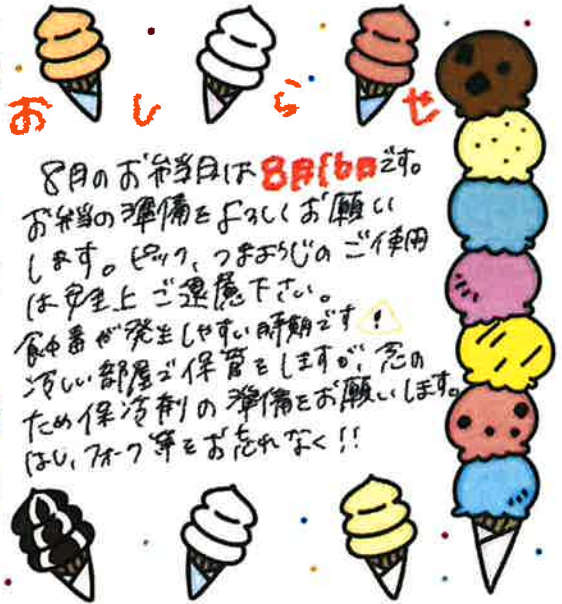 おしらせ
8月のお弁当日は8月16日です。
お弁当の準備をよろしくお願い
します。ピック、つまようじのご使用
は安全上ご遠慮下さい。
食中毒が発生しやすい時期です！
涼しい部屋で保管をしますが、念の
ため保冷剤の準備をお願いします。
はし、フォーク等をお忘れなく!!